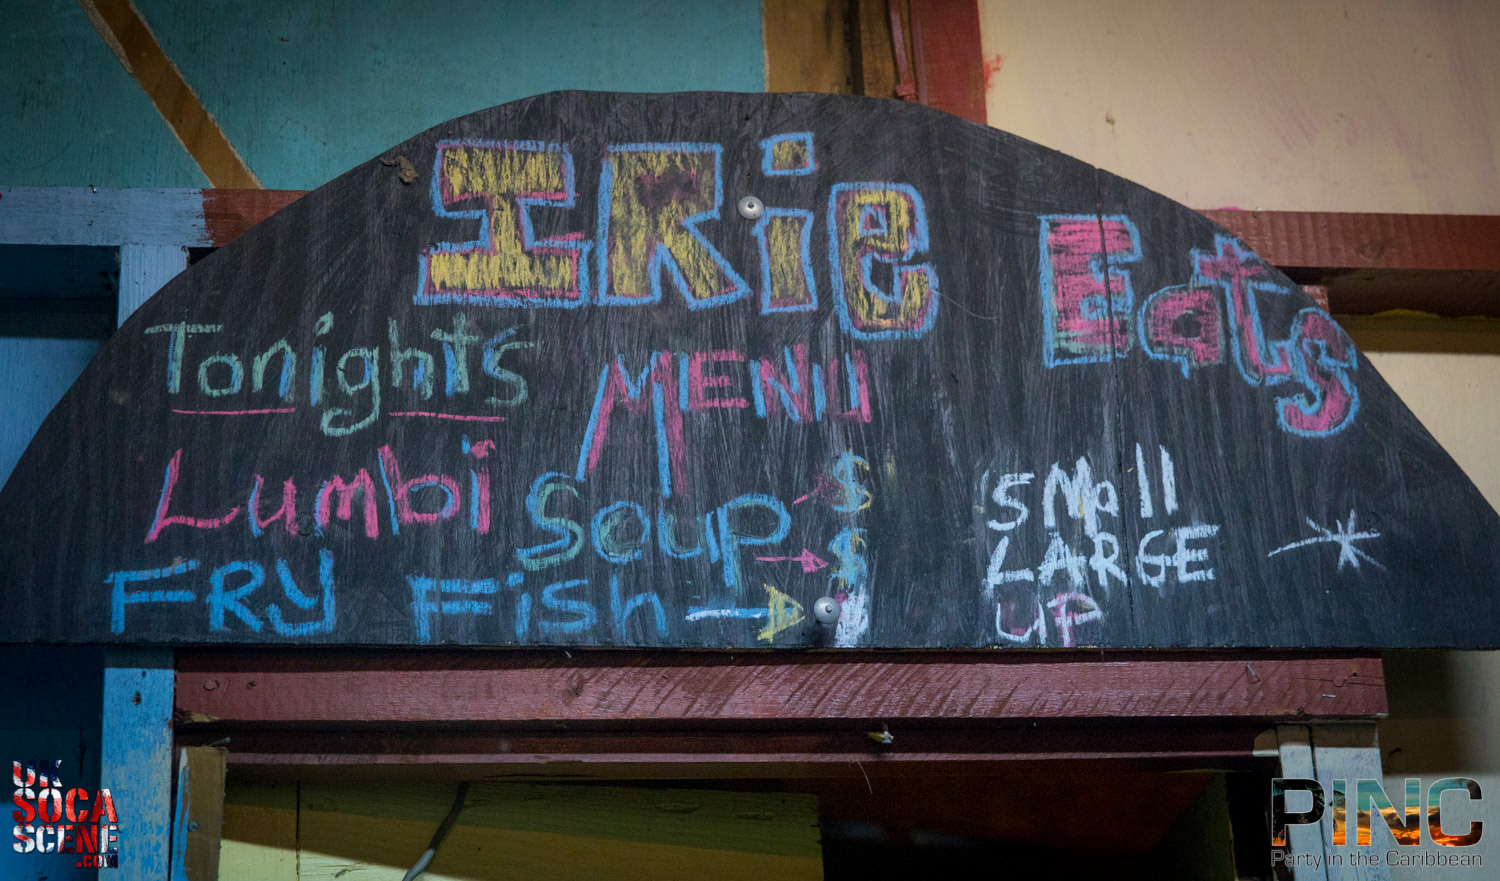 IRie Eats
Tonight's MENU
Lumbi Soup → $ Small
→ $ LARGE
FRY Fish → UP
UK
SOCA
SCENE
.COM
PINC
Party in the Caribbean